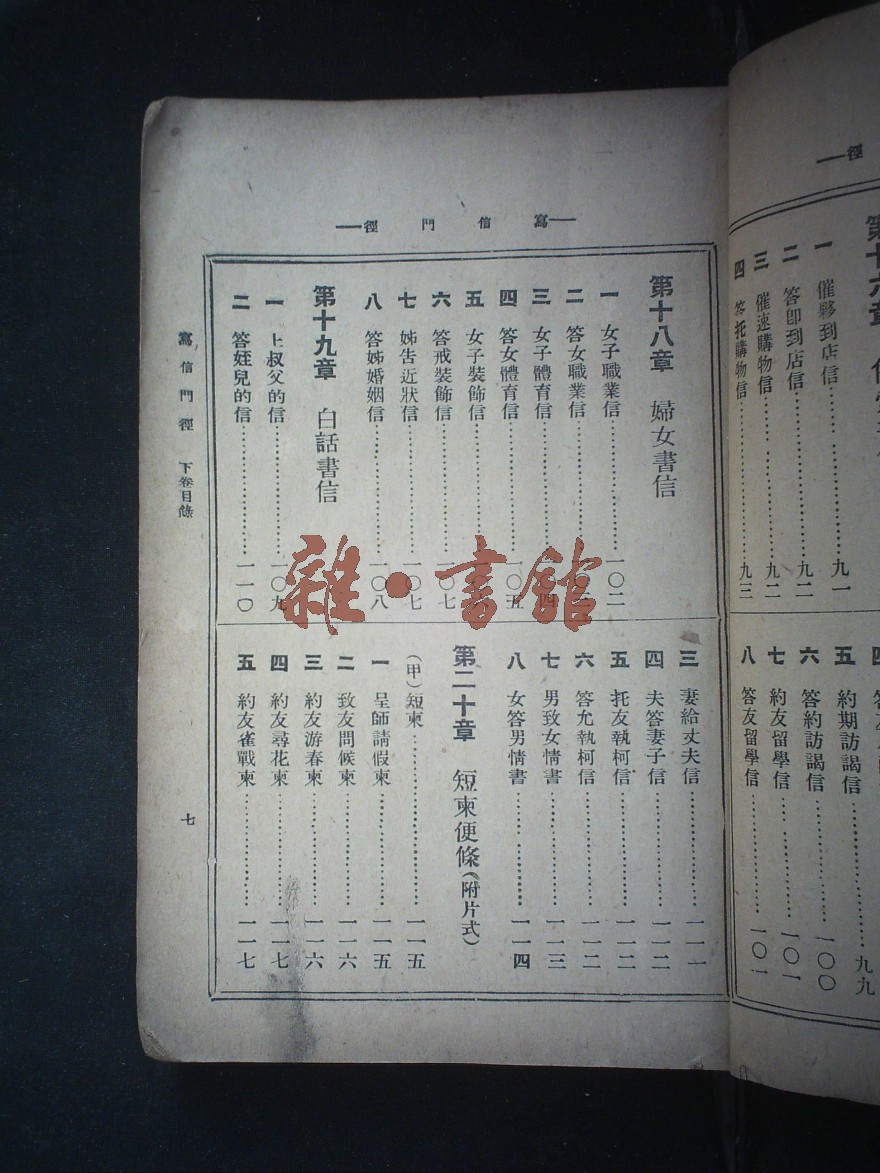 徑
第十六章
一 催夥到店信 九一
二 答卽到店信 九二
三 催速購物信 九二
四 答托購物信 九三
五 約期訪謁信 九九
六 答約訪謁信 一〇〇
七 約友留學信 一〇一
八 答友留學信 一〇一
寫信門徑
第十八章 婦女書信
一 女子職業信 一〇二
二 答女職業信 一〇
三 女子體育信 一〇四
四 答女體育信 一〇五
五 女子裝飾信 一〇
六 答戒裝飾信 一〇七
七 姊告近狀信 一〇七
八 答姊婚姻信 一〇八
第十九章 白話書信
一 上叔父的信 一〇九
二 答姪兒的信 一一〇
三 妻給丈夫信 一一一
四 夫答妻子信 一一二
五 托友執柯信 一一二
六 答允執柯信 一一二
七 男致女情書 一一三
八 女答男情書 一一四
第二十章 短柬便條(附片式)
(甲)短柬 一一五
一 呈師請假柬 一一五
二 致友問候柬 一一六
三 約友游春柬 一一六
四 約友尋花柬 一一七
五 約友雀戰柬 一一七
寫信門徑 下卷目錄
七
雜·書館